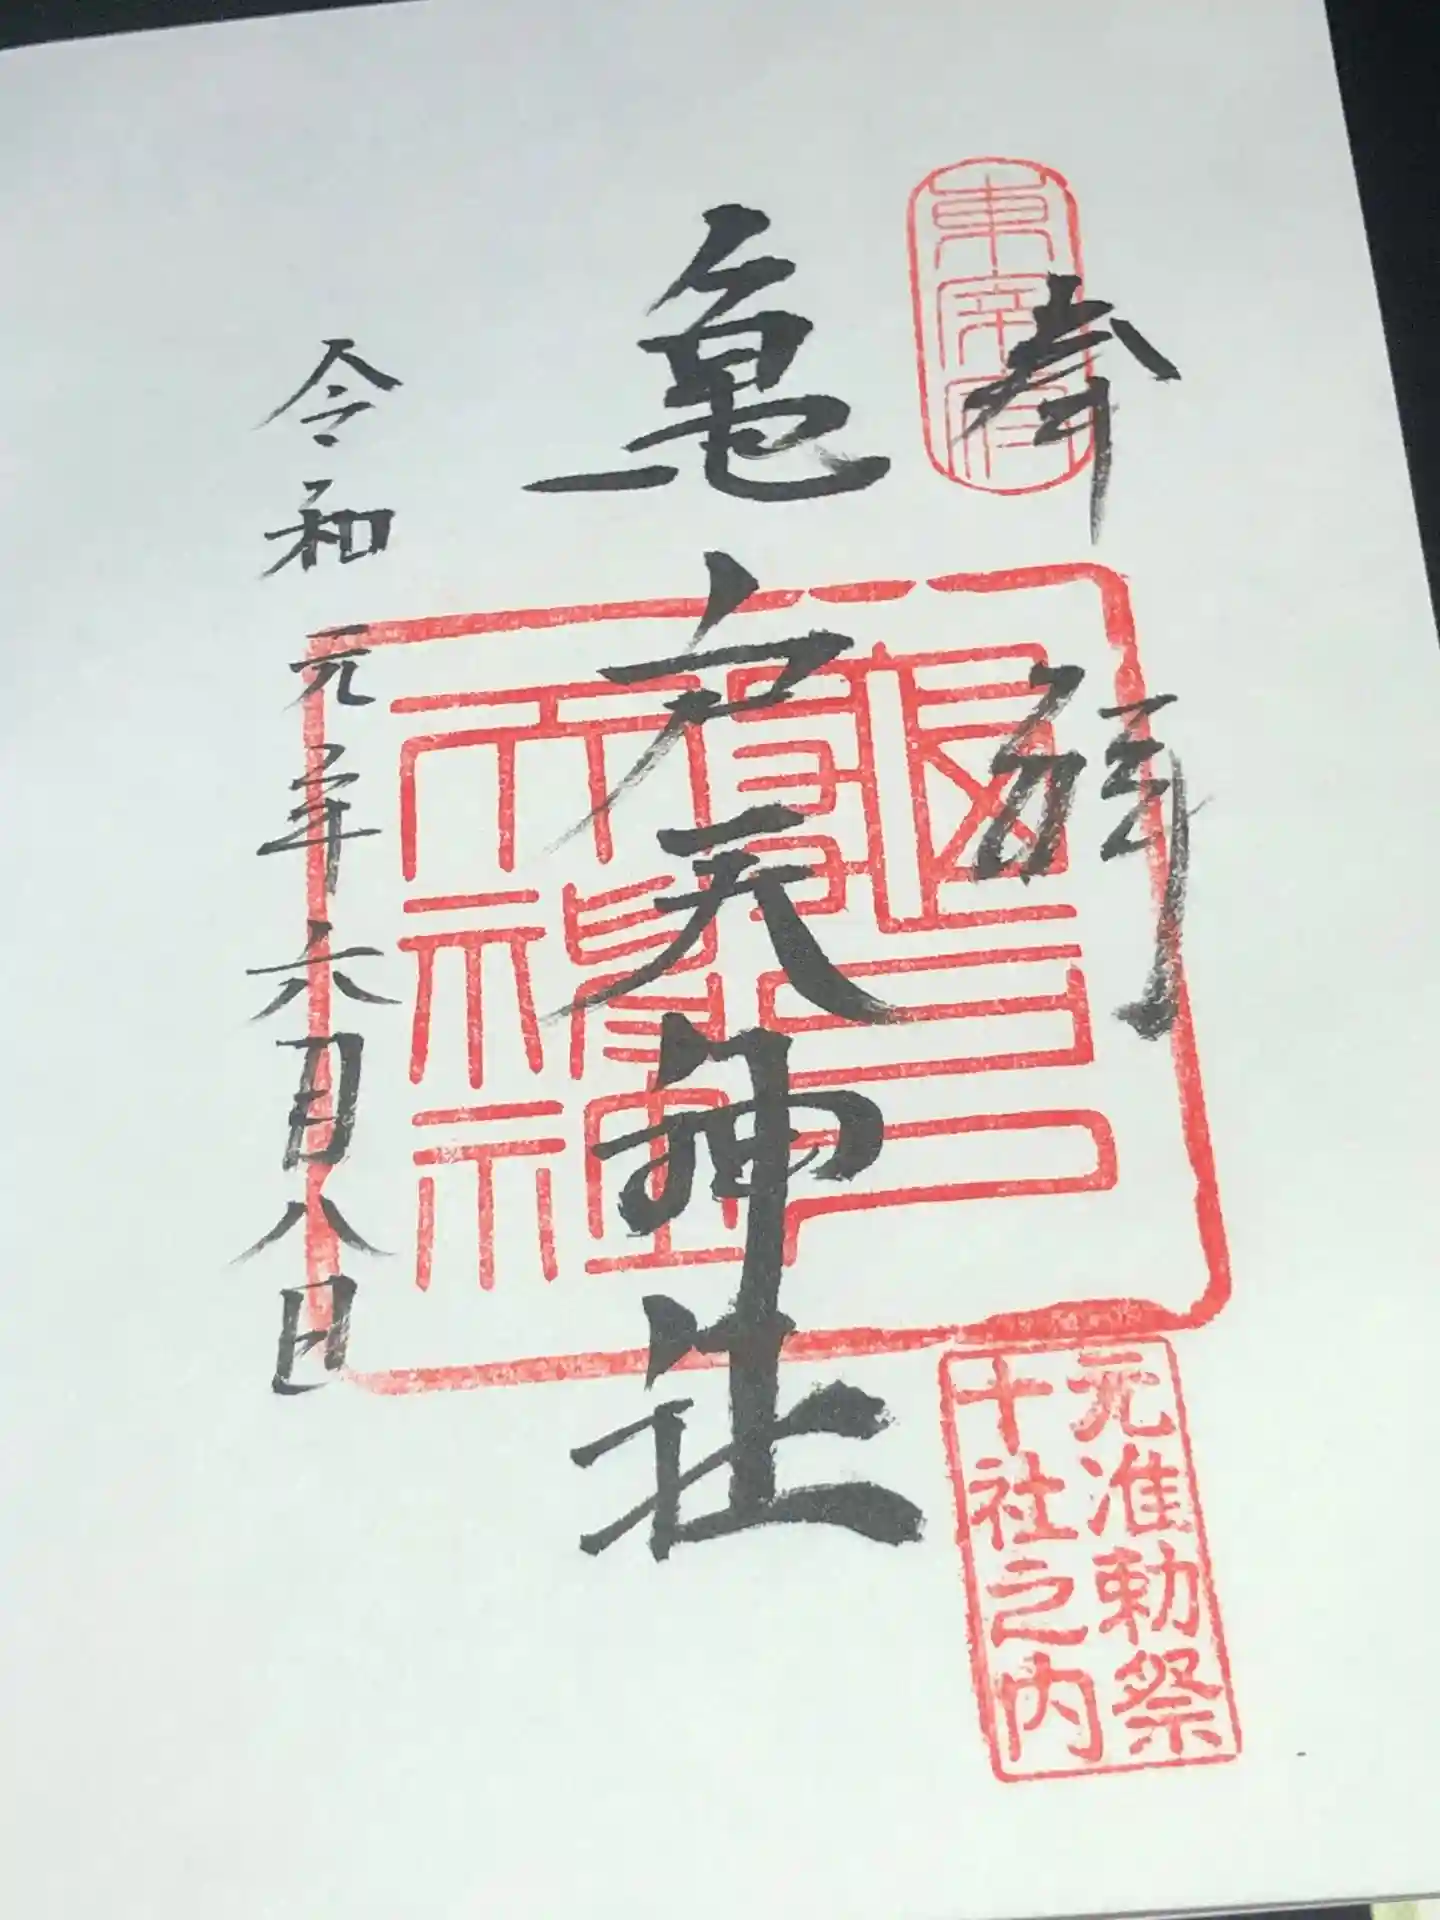 東宰府
奉拝
亀戸天神社
令和元年六月八日
龜戸天神社
元准勅祭
十社之内